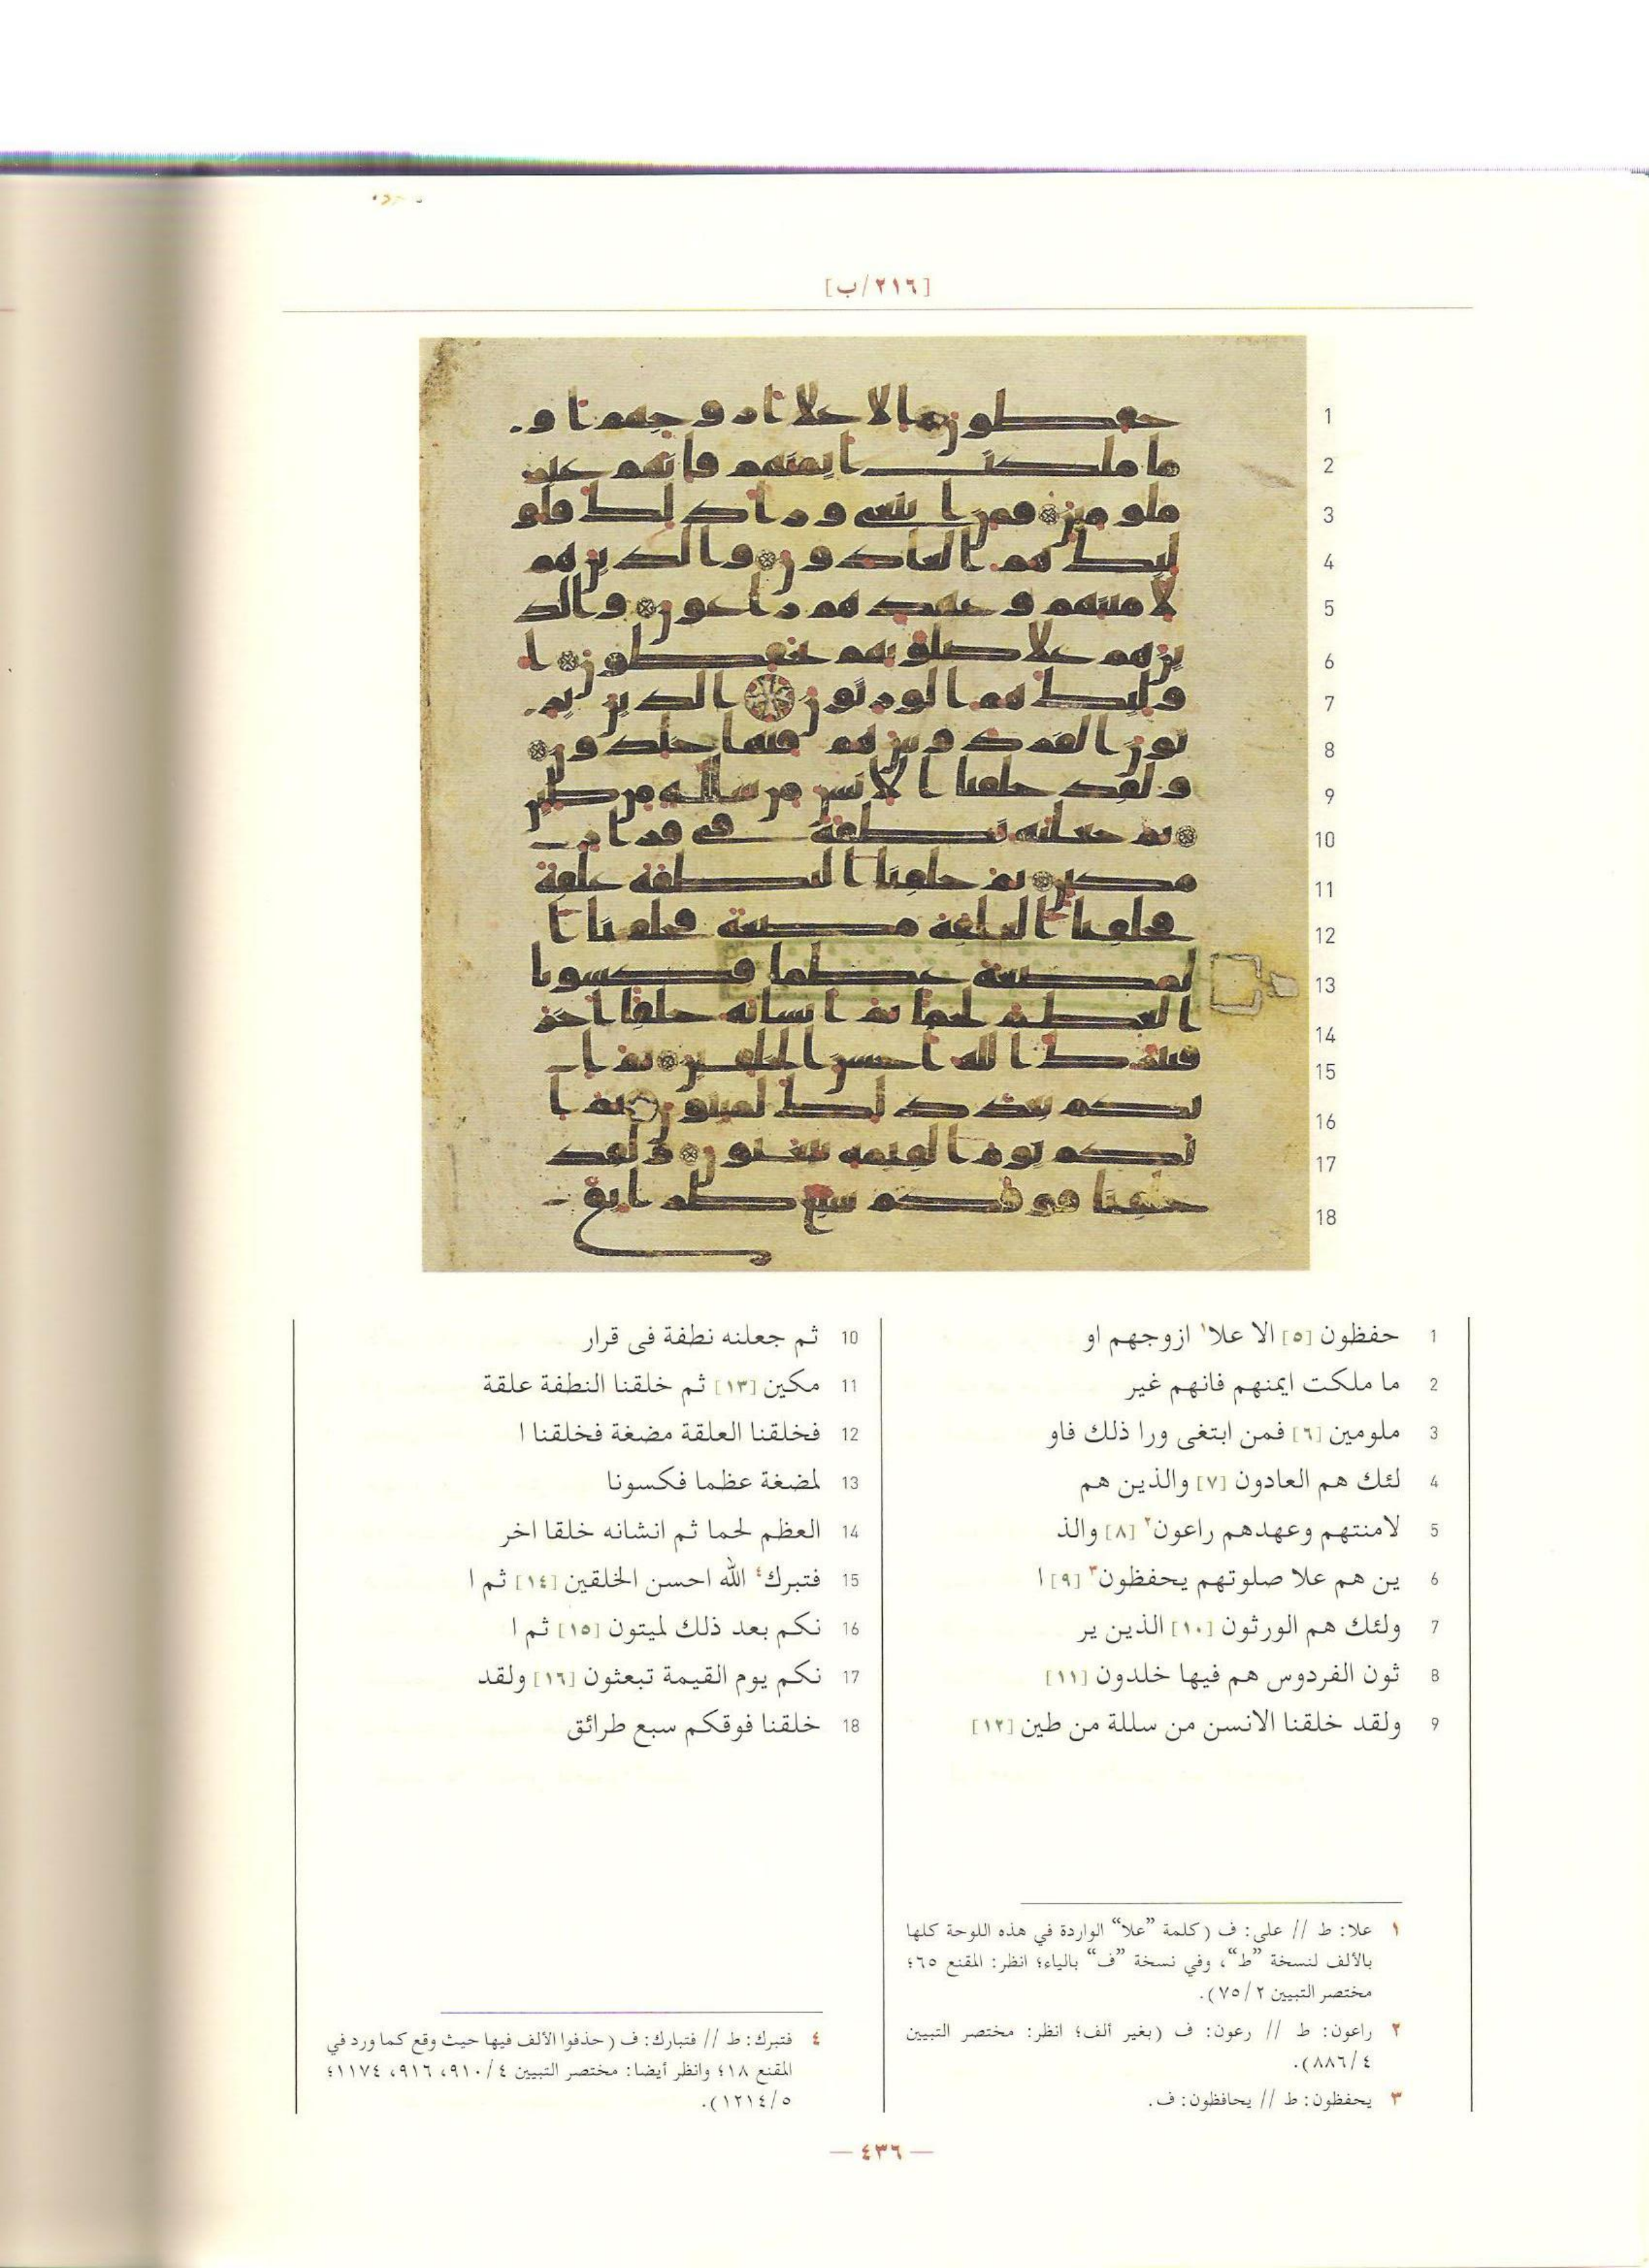 [٢١٦/ب]
1 حفظون [٥] الا علا١ ازوجهم او
2 ما ملكت ايمنهم فانهم غير
3 ملومين [٦] فمن ابتغى ورا ذلك فاو
4 لئك هم العادون [٧] والذين هم
5 لامنتهم وعهدهم راعون٢ [٨] والذ
6 ين هم علا صلوتهم يحفظون٣ [٩] ا
7 ولئك هم الورثون [١٠] الذين ير
8 ثون الفردوس هم فيها خلدون [١١]
9 ولقد خلقنا الانسن من سللة من طين [١٢]
10 ثم جعلنه نطفة فى قرار
11 مكين [١٣] ثم خلقنا النطفة علقة
12 فخلقنا العلقة مضغة فخلقنا ا
13 لمضغة عظما فكسونا
14 العظم لحما ثم انشانه خلقا اخر
15 فتبرك٤ الله احسن الخلقين [١٤] ثم ا
16 نكم بعد ذلك لميتون [١٥] ثم ا
17 نكم يوم القيمة تبعثون [١٦] ولقد
18 خلقنا فوقكم سبع طرائق
١ علا: ط // على: ف (كلمة "علا" الواردة في هذه اللوحة كلها
بالألف لنسخة "ط"، وفي نسخة "ف" بالياء؛ انظر: المقنع ٦٥؛
مختصر التبيين ٧٥/٢).
٢ راعون: ط // رعون: ف (بغير ألف؛ انظر: مختصر التبيين
٨٨٦/٤).
٣ يحفظون: ط // يحافظون: ف.
٤ فتبرك: ط // فتبارك: ف (حذفوا الألف فيها حيث وقع كما ورد في
المقنع ١٨؛ وانظر أيضا: مختصر التبيين ٩١٠/٤، ٩١٦، ١١٧٤؛
١٢١٤/٥).
— ٤٣٦ —